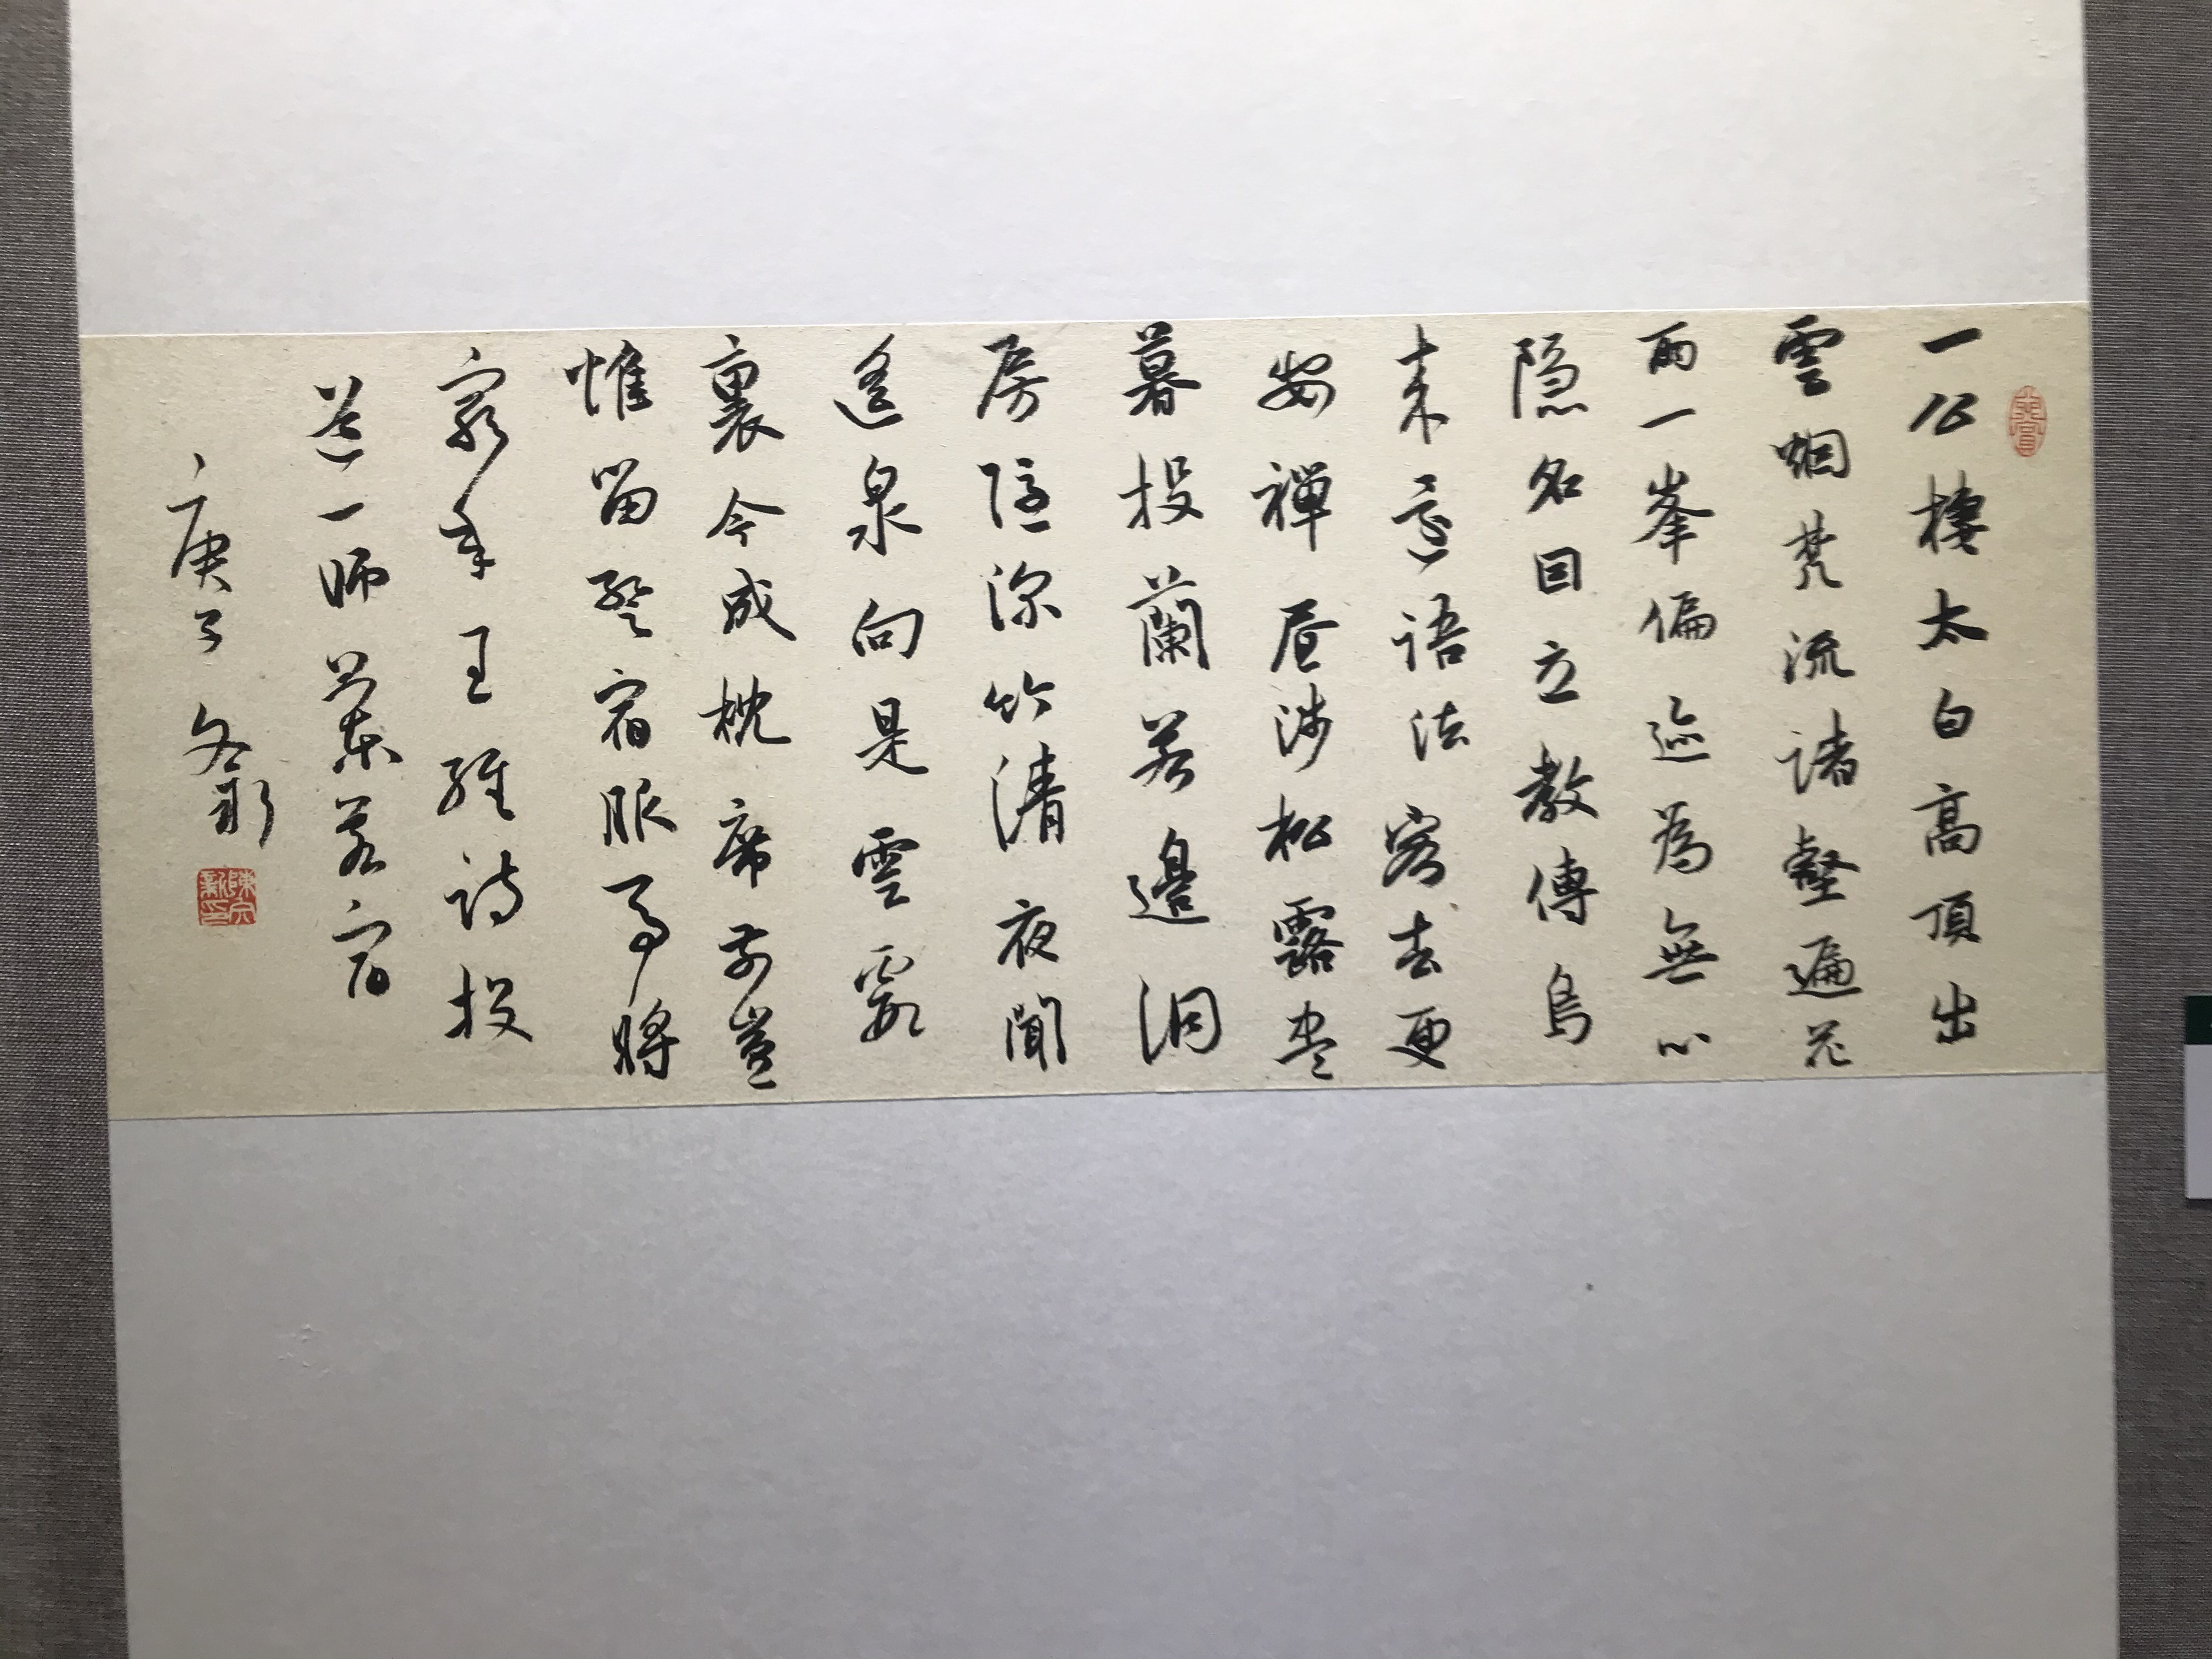 一公棲太白高頂出
雲烟梵流諸壑遍花
雨一峯偏迹為無心
隐名因立教傳鳥
来還語法客去更
安禪昼涉松露盡
暮投蘭若邊洞
房隱深竹清夜聞
遙泉向是雲霞
裏今成枕席前豈
惟留暫宿服事將
窮年王維詩投
道一師蘭若宿
庚子冬新